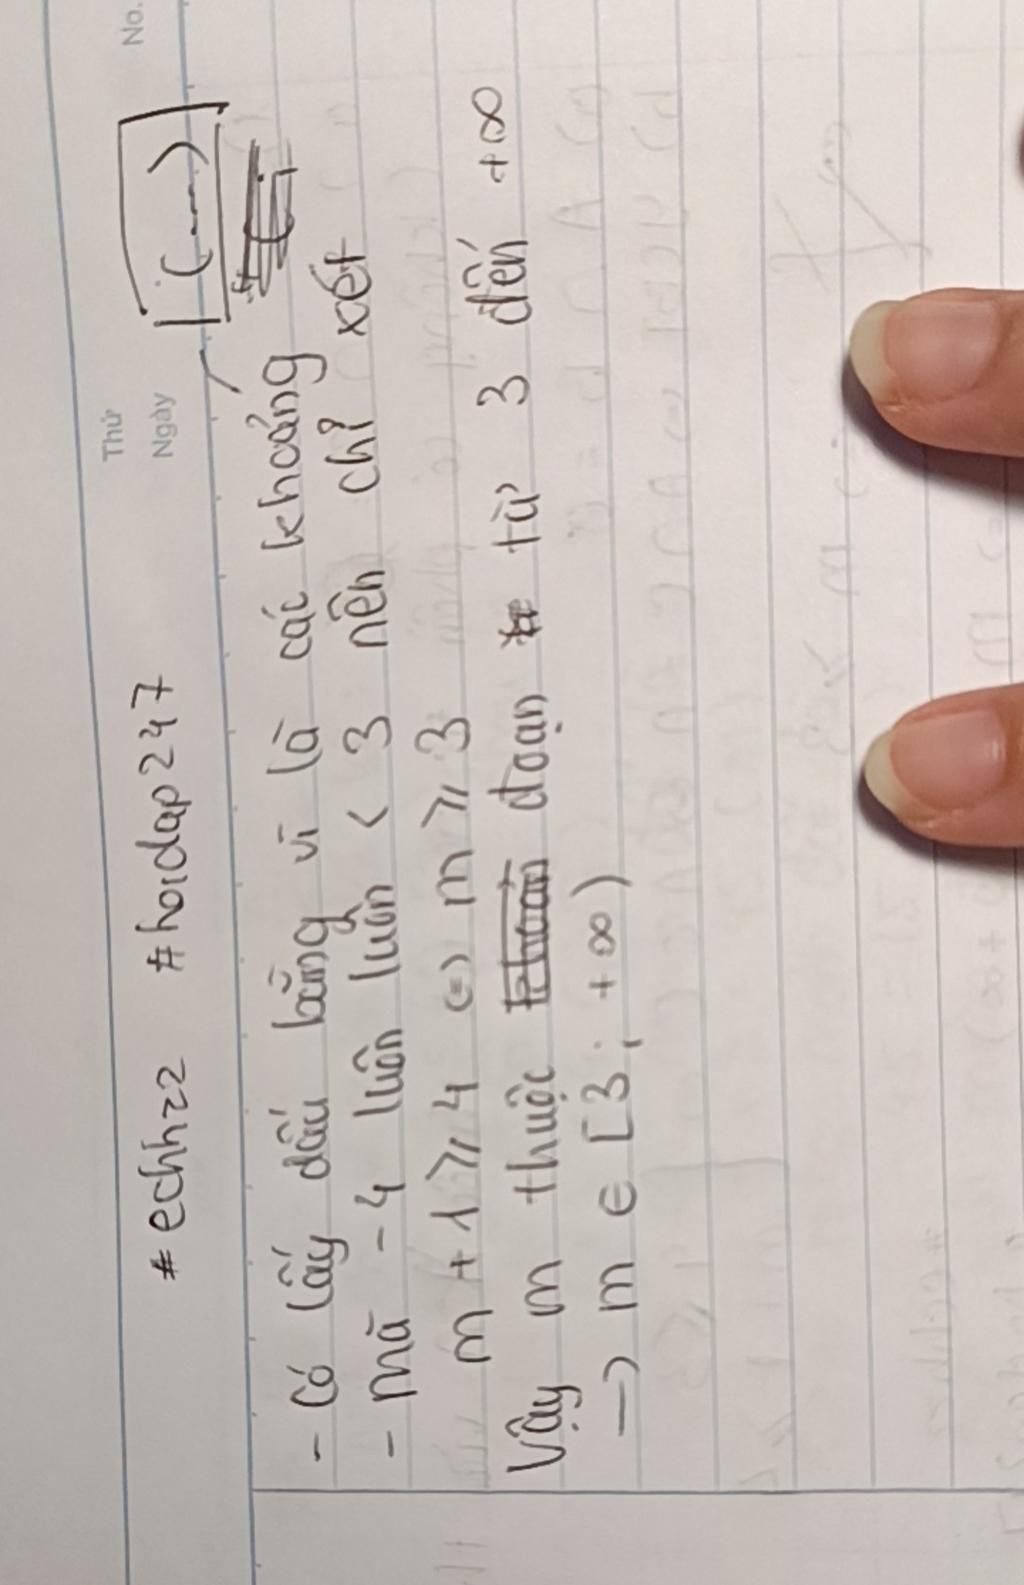 Thứ
Ngày
No.
#echh22 #hoidap247
[(....)]
- Có lấy dấu bằng vì là các khoảng
- mà -4 luôn luôn < 3 nên chỉ xét
m + 1 ⩾ 4 (=) m ⩾ 3
Vậy m thuộc đoạn từ 3 đến +∞
-> m ∈ [3; +∞)